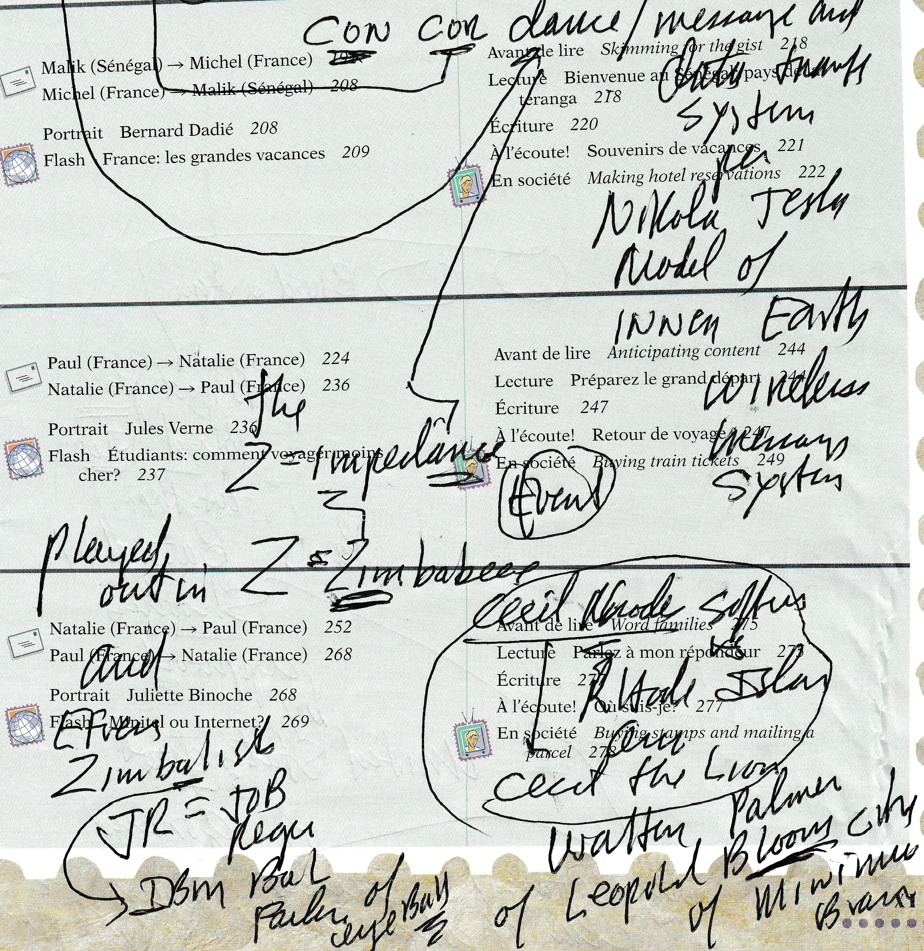 CON CON dance / message and
Malik (Sénégal) → Michel (France)
Michel (France) → Malik (Sénégal) 208
Portrait Bernard Dadié 208
Flash France: les grandes vacances 209
Avant de lire Skimming for the gist 218
Lecture Bienvenue au Sénégal, pays de
téranga 218
Écriture 220
À l'écoute! Souvenirs de vacances 221
En société Making hotel reservations 222
System
per
Nikola Tesla
Model of
INNER Earth
Wireless
System
Paul (France) → Natalie (France) 224
Natalie (France) → Paul (France) 236
Portrait Jules Verne 236
Flash Étudiants: comment voyager moins
cher? 237
Avant de lire Anticipating content 244
Lecture Préparez le grand départ 244
Écriture 247
À l'écoute! Retour de voyage 247
En société Buying train tickets 249
the
Z = impedance
Event
played
out in Z = Zimbabwe
Natalie (France) → Paul (France) 252
Paul (France) → Natalie (France) 268
Portrait Juliette Binoche 268
Flash Minitel ou Internet? 269
Avant de lire Word families 275
Lecture Parlez à mon répondeur 275
Écriture
À l'écoute! Où suis-je? 277
En société Buying stamps and mailing a
parcel 278
and
Efrem
Zimbalist
JR = JOB
Cecil Rhode
Rhode Island
Cecil the Lion
Walter Palmer
of Leopold Bloom City
of
eyeBall